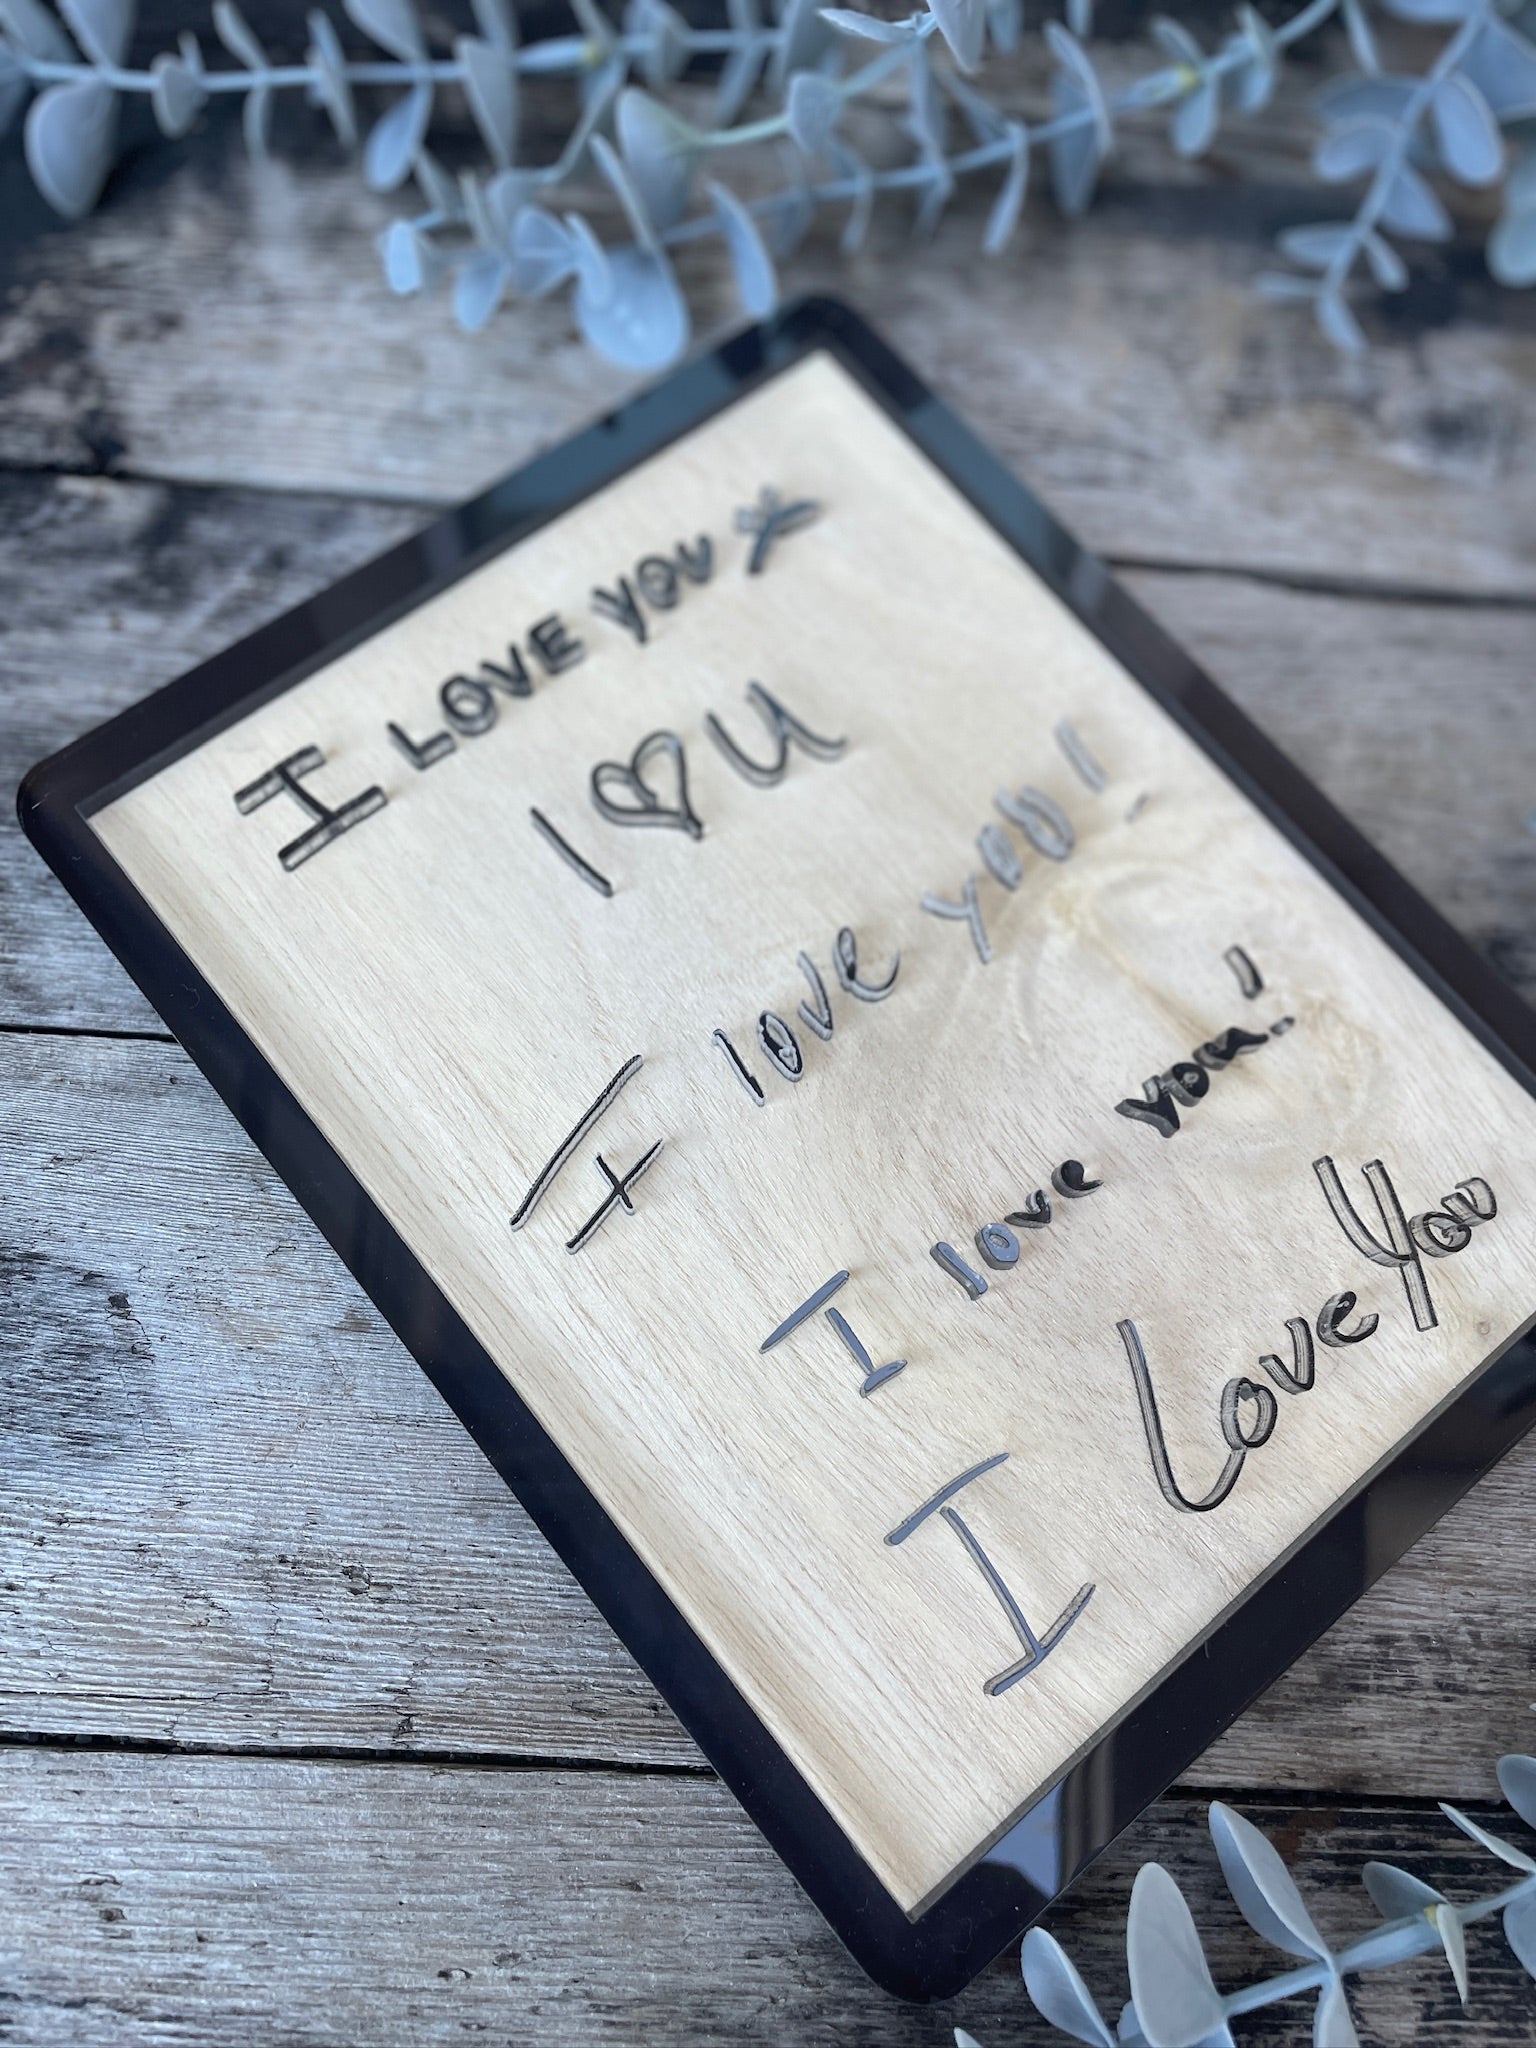 I LOVE YOU X
I ♡ U
I love you!
I love you!
I Love You